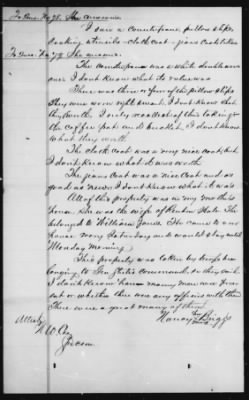 To Inter. No 78. She answers.
I saw a counterpane, pillow slips,
cooking utensils - cloth coat - jeans coat taken
To Inter. No 79 She answers.
The counterpane was a white double woven
one I don't know what its value was
There was three of the pillow slips
They were worn right smart. I don't know what
they worth I only recollect of this taking
the coffee pot and bucket, I don't know
what they worth
The cloth coat was a very nice coat, but
I don't know what it was worth
The jeans coat was a nice coat and as
good as new I don't know what it was
All of this property was in my mother's
house. She was the wife of Reuben
belonged to William Jones. He came to our
house every Saturday and would stay until
Monday morning
This property was taken by troops be-
longing to Gen. command as they said.
I don't know how many men were pres-
ent or whether there were any officers with them
There were a great many of them
Nancy her mark Briggs
Attest